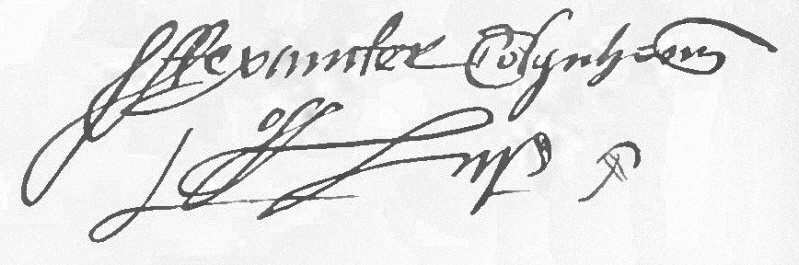 Alexander Colquhoun
off Luss